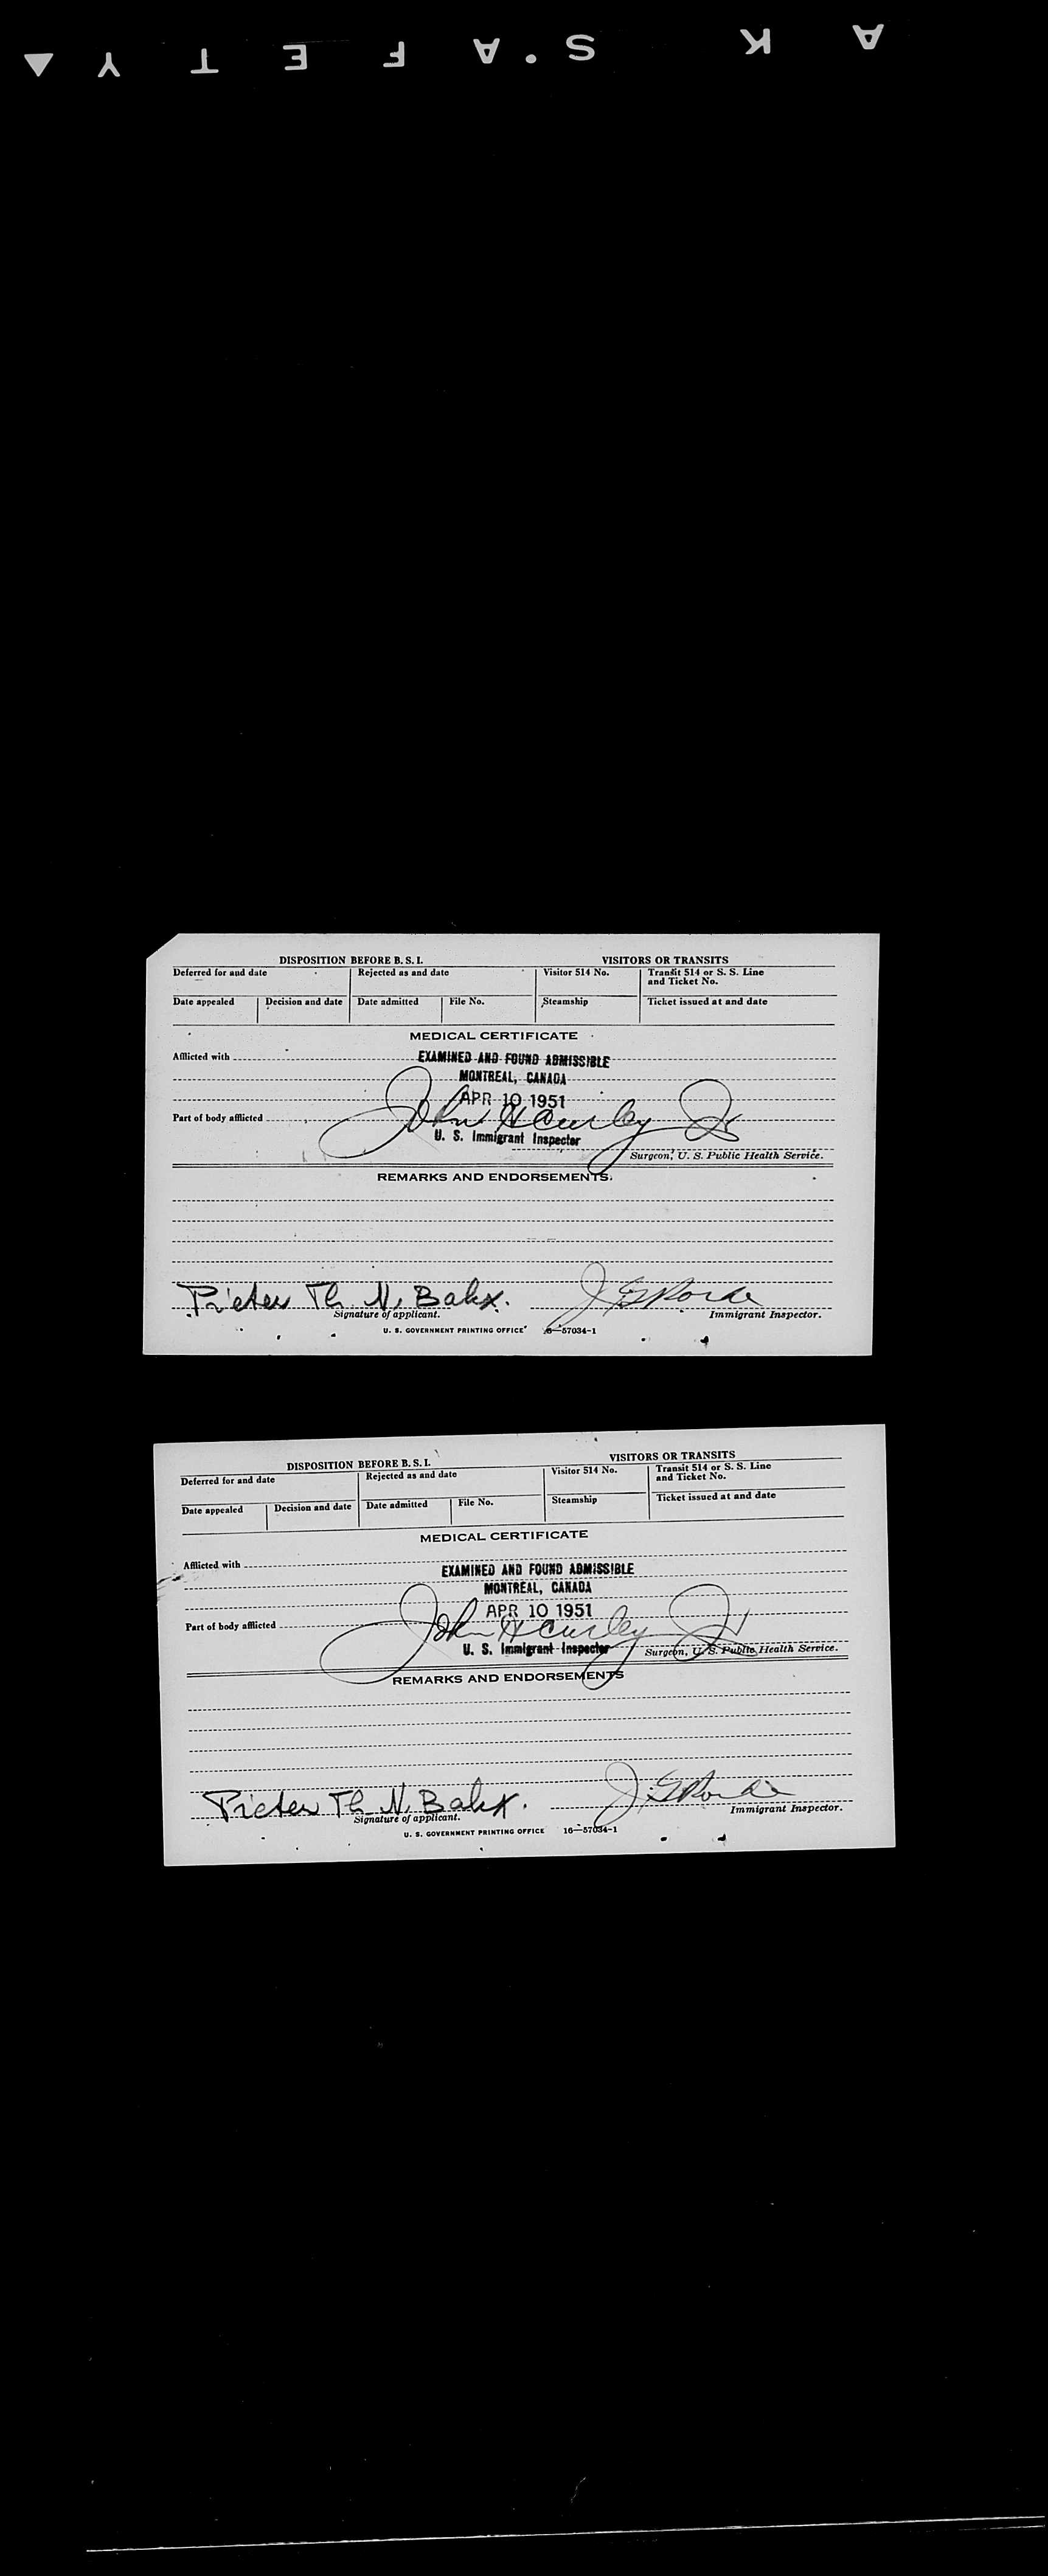 ▲ Y T E F A . S K A
DISPOSITION BEFORE B. S. I. VISITORS OR TRANSITS
Deferred for and date Rejected as and date Visitor 514 No. Transit 514 or S. S. Line and Ticket No.
Date appealed Decision and date Date admitted File No. Steamship Ticket issued at and date
MEDICAL CERTIFICATE
Afflicted with
EXAMINED AND FOUND ADMISSIBLE
MONTREAL, CANADA
APR 10 1951
Part of body afflicted John H Curley Jr
U. S. Immigrant Inspector
Surgeon, U. S. Public Health Service.
REMARKS AND ENDORSEMENTS.
Pieter Th. N. Bakx.
Signature of applicant. Immigrant Inspector.
U. S. GOVERNMENT PRINTING OFFICE 16—57034-1
DISPOSITION BEFORE B. S. I. VISITORS OR TRANSITS
Deferred for and date Rejected as and date Visitor 514 No. Transit 514 or S. S. Line and Ticket No.
Date appealed Decision and date Date admitted File No. Steamship Ticket issued at and date
MEDICAL CERTIFICATE
Afflicted with
EXAMINED AND FOUND ADMISSIBLE
MONTREAL, CANADA
APR 10 1951
Part of body afflicted John H Curley Jr
U. S. Immigrant Inspector
Surgeon, U. S. Public Health Service.
REMARKS AND ENDORSEMENTS
Pieter Th. N. Bakx.
Signature of applicant. Immigrant Inspector.
U. S. GOVERNMENT PRINTING OFFICE 16—57034-1